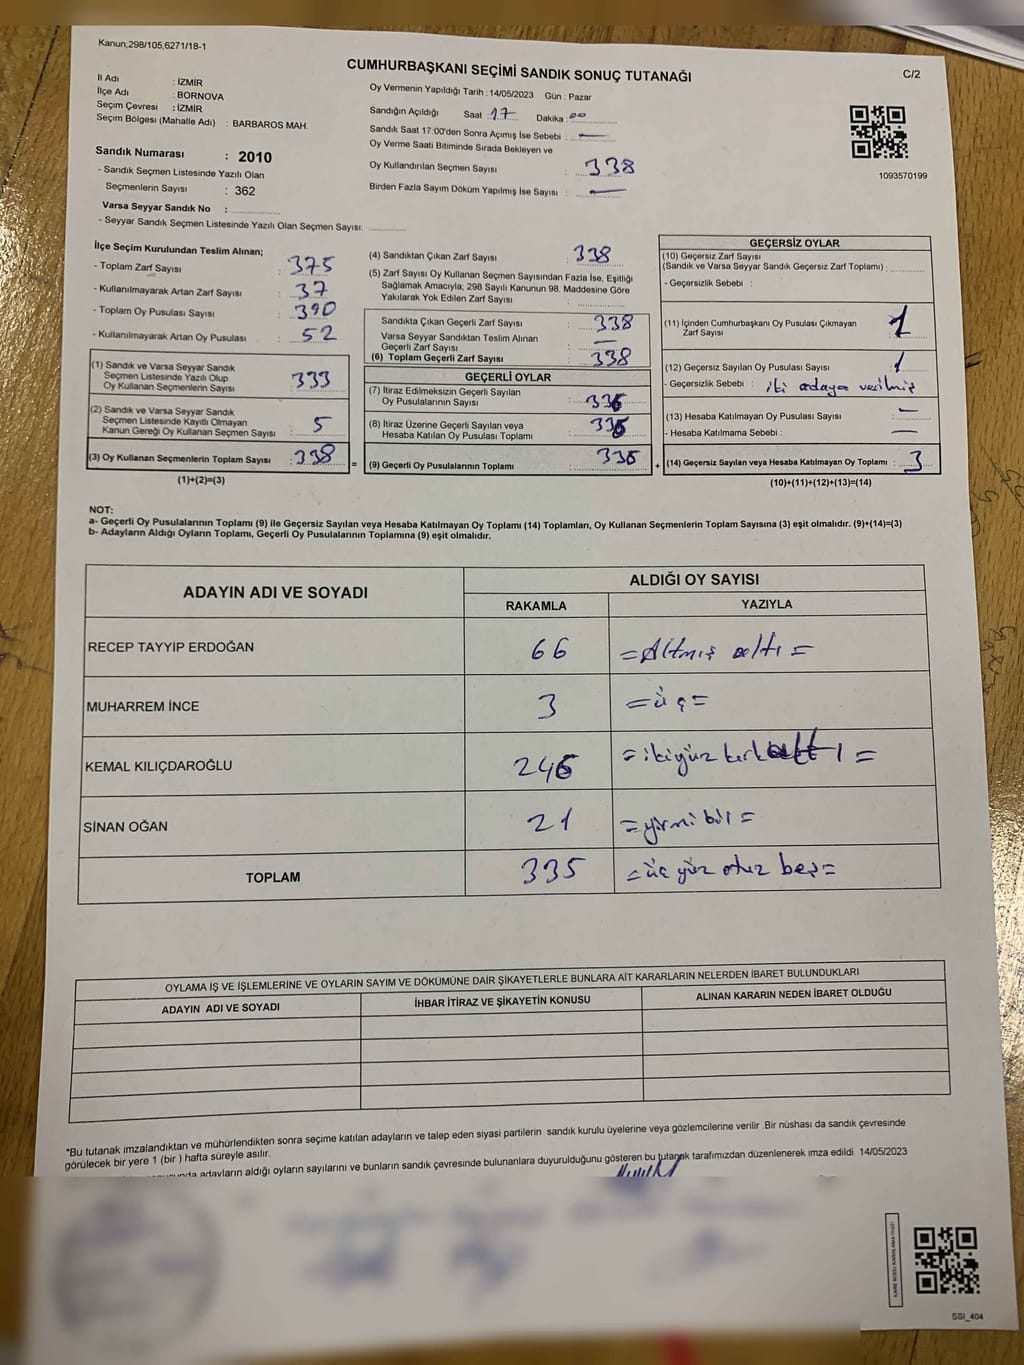 Kanun;298/105,6271/18-1
CUMHURBAŞKANI SEÇİMİ SANDIK SONUÇ TUTANAĞI
C/2
İl Adı : İZMİR
İlçe Adı : BORNOVA
Seçim Çevresi : İZMİR
Seçim Bölgesi (Mahalle Adı) : BARBAROS MAH.
Sandık Numarası : 2010
- Sandık Seçmen Listesinde Yazılı Olan
Seçmenlerin Sayısı : 362
Varsa Seyyar Sandık No :
- Seyyar Sandık Seçmen Listesinde Yazılı Olan Seçmen Sayısı:
Oy Vermenin Yapıldığı Tarih : 14/05/2023 Gün : Pazar
Sandığın Açıldığı Saat : 17 Dakika : 00
Sandık Saat 17:00'den Sonra Açımış İse Sebebi : —
Oy Verme Saati Bitiminde Sırada Bekleyen ve
Oy Kullandırılan Seçmen Sayısı : 338
Birden Fazla Sayım Döküm Yapılmış İse Sayısı : —
1093570199
İlçe Seçim Kurulundan Teslim Alınan;
- Toplam Zarf Sayısı : 375
- Kullanılmayarak Artan Zarf Sayısı : 37
- Toplam Oy Pusulası Sayısı : 390
- Kullanılmayarak Artan Oy Pusulası : 52
(1) Sandık ve Varsa Seyyar Sandık
Seçmen Listesinde Yazılı Olup
Oy Kullanan Seçmenlerin Sayısı : 333
(2) Sandık ve Varsa Seyyar Sandık
Seçmen Listesinde Kayıtlı Olmayan
Kanun Gereği Oy Kullanan Seçmen Sayısı : 5
(3) Oy Kullanan Seçmenlerin Toplam Sayısı : 338
(1)+(2)=(3)
(4) Sandıktan Çıkan Zarf Sayısı : 338
(5) Zarf Sayısı Oy Kullanan Seçmen Sayısından Fazla İse, Eşitliği
Sağlamak Amacıyla; 298 Sayılı Kanunun 98. Maddesine Göre
Yakılarak Yok Edilen Zarf Sayısı :
Sandıkta Çıkan Geçerli Zarf Sayısı : 338
Varsa Seyyar Sandıktan Teslim Alınan
Geçerli Zarf Sayısı : —
(6) Toplam Geçerli Zarf Sayısı : 338
=
GEÇERLİ OYLAR
(7) İtiraz Edilmeksizin Geçerli Sayılan
Oy Pusulalarının Sayısı :
(8) İtiraz Üzerine Geçerli Sayılan veya
Hesaba Katılan Oy Pusulası Toplamı :
(9) Geçerli Oy Pusulalarının Toplamı :
+
GEÇERSİZ OYLAR
(10) Geçersiz Zarf Sayısı
(Sandık ve Varsa Seyyar Sandık Geçersiz Zarf Toplamı) :
- Geçersizlik Sebebi :
(11) İçinden Cumhurbaşkanı Oy Pusulası Çıkmayan
Zarf Sayısı :
(12) Geçersiz Sayılan Oy Pusulası Sayısı : 1
- Geçersizlik Sebebi : iki adaya verilmiş
(13) Hesaba Katılmayan Oy Pusulası Sayısı : —
- Hesaba Katılmama Sebebi : —
(14) Geçersiz Sayılan veya Hesaba Katılmayan Oy Toplamı : 3
(10)+(11)+(12)+(13)=(14)
NOT:
a- Geçerli Oy Pusulalarının Toplamı (9) ile Geçersiz Sayılan veya Hesaba Katılmayan Oy Toplamı (14) Toplamları, Oy Kullanan Seçmenlerin Toplam Sayısına (3) eşit olmalıdır. (9)+(14)=(3)
b- Adayların Aldığı Oyların Toplamı, Geçerli Oy Pusulalarının Toplamına (9) eşit olmalıdır.
ADAYIN ADI VE SOYADI
ALDIĞI OY SAYISI
RAKAMLA YAZIYLA
RECEP TAYYİP ERDOĞAN 66 =Altmış altı=
MUHARREM İNCE 3 =üç=
KEMAL KILIÇDAROĞLU 246 =ikiyüz kırkaltı=
SİNAN OĞAN 21 =yirmi bir=
TOPLAM 335 =üç yüz otuz beş=
OYLAMA İŞ VE İŞLEMLERİNE VE OYLARIN SAYIM VE DÖKÜMÜNE DAİR ŞİKAYETLERLE BUNLARA AİT KARARLARIN NELERDEN İBARET BULUNDUKLARI
ADAYIN ADI VE SOYADI İHBAR İTİRAZ VE ŞİKAYETİN KONUSU ALINAN KARARIN NEDEN İBARET OLDUĞU
*Bu tutanak imzalandıktan ve mühürlendikten sonra seçime katılan adayların ve talep eden siyasi partilerin sandık kurulu üyelerine veya gözlemcilerine verilir .Bir nüshası da sandık çevresinde
görülecek bir yere 1 (bir ) hafta süreyle asılır.
adayların aldığı oyların sayılarını ve bunların sandık çevresinde bulunanlara duyurulduğunu gösteren bu tutanak tarafımızdan düzenlenerek imza edildi 14/05/2023
SSI_404